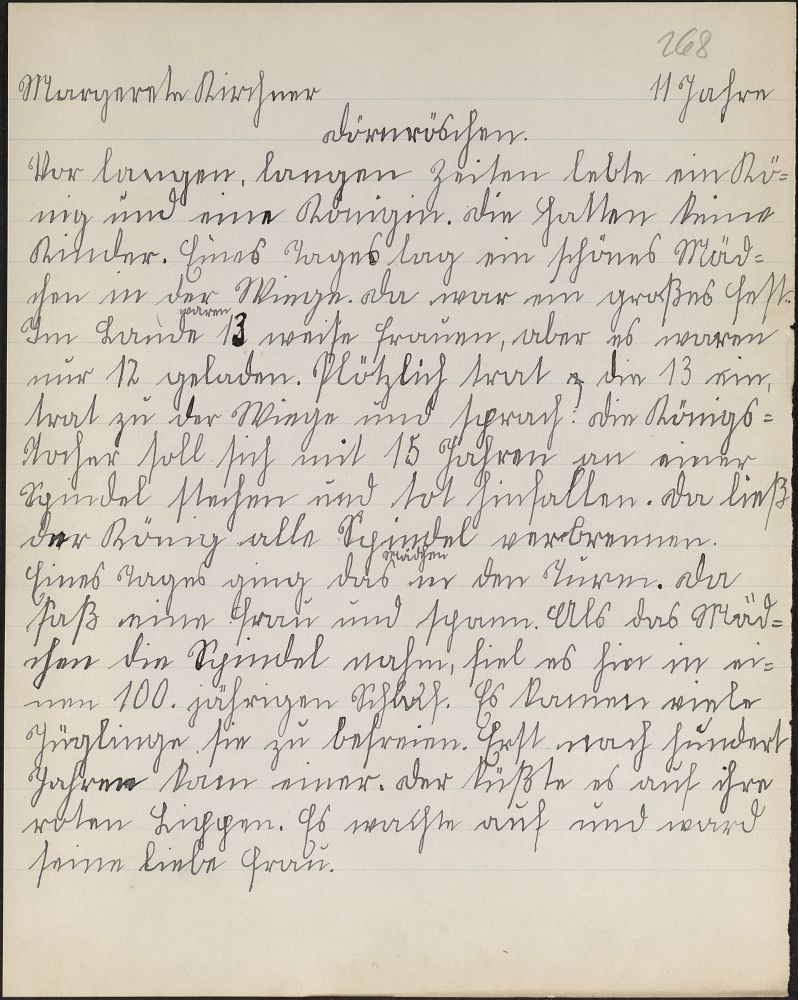 268
Margerete Kirchner 11 Jahre
Dörnröschen.
Vor langen, langen Zeiten lebte ein Kö=
nig und eine Königin. Die hatten keine
Kinder. Eines Tages lag ein schönes Mäd=
chen in der Wiege. Da war ein großes Fest.
Im Lande waren 13 weise Frauen, aber es waren
nur 12 geladen. Plötzlich trat die 13 ein,
trat zu der Wiege und sprach: Die Königs=
tocher soll sich mit 15 Jahren an einer
Spindel stechen und tot hinfallen. Da ließ
der König alle Spindel verbrennen.
Eines Tages ging das Mädchen in den Turm. Da
saß eine Frau und spann. Als das Mäd=
chen die Spindel nahm, fiel es hin in ei=
nen 100. jährigen Schlaf. Es kamen viele
Jüglinge sie zu befreien. Erst nach hundert
Jahren kam einer. Der küßte es auf ihre
roten Lippen. Es wachte auf und ward
seine liebe Frau.